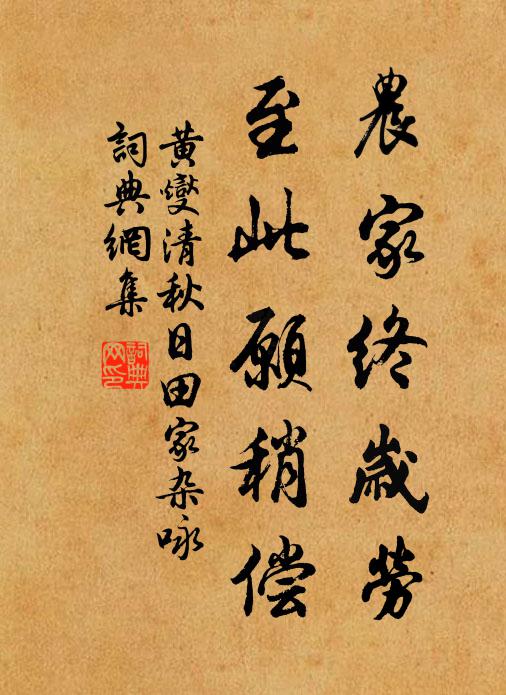 農家終歲勞
至此願稍偿
黄燮清秋日田家杂咏
詞典網集
詞典网印